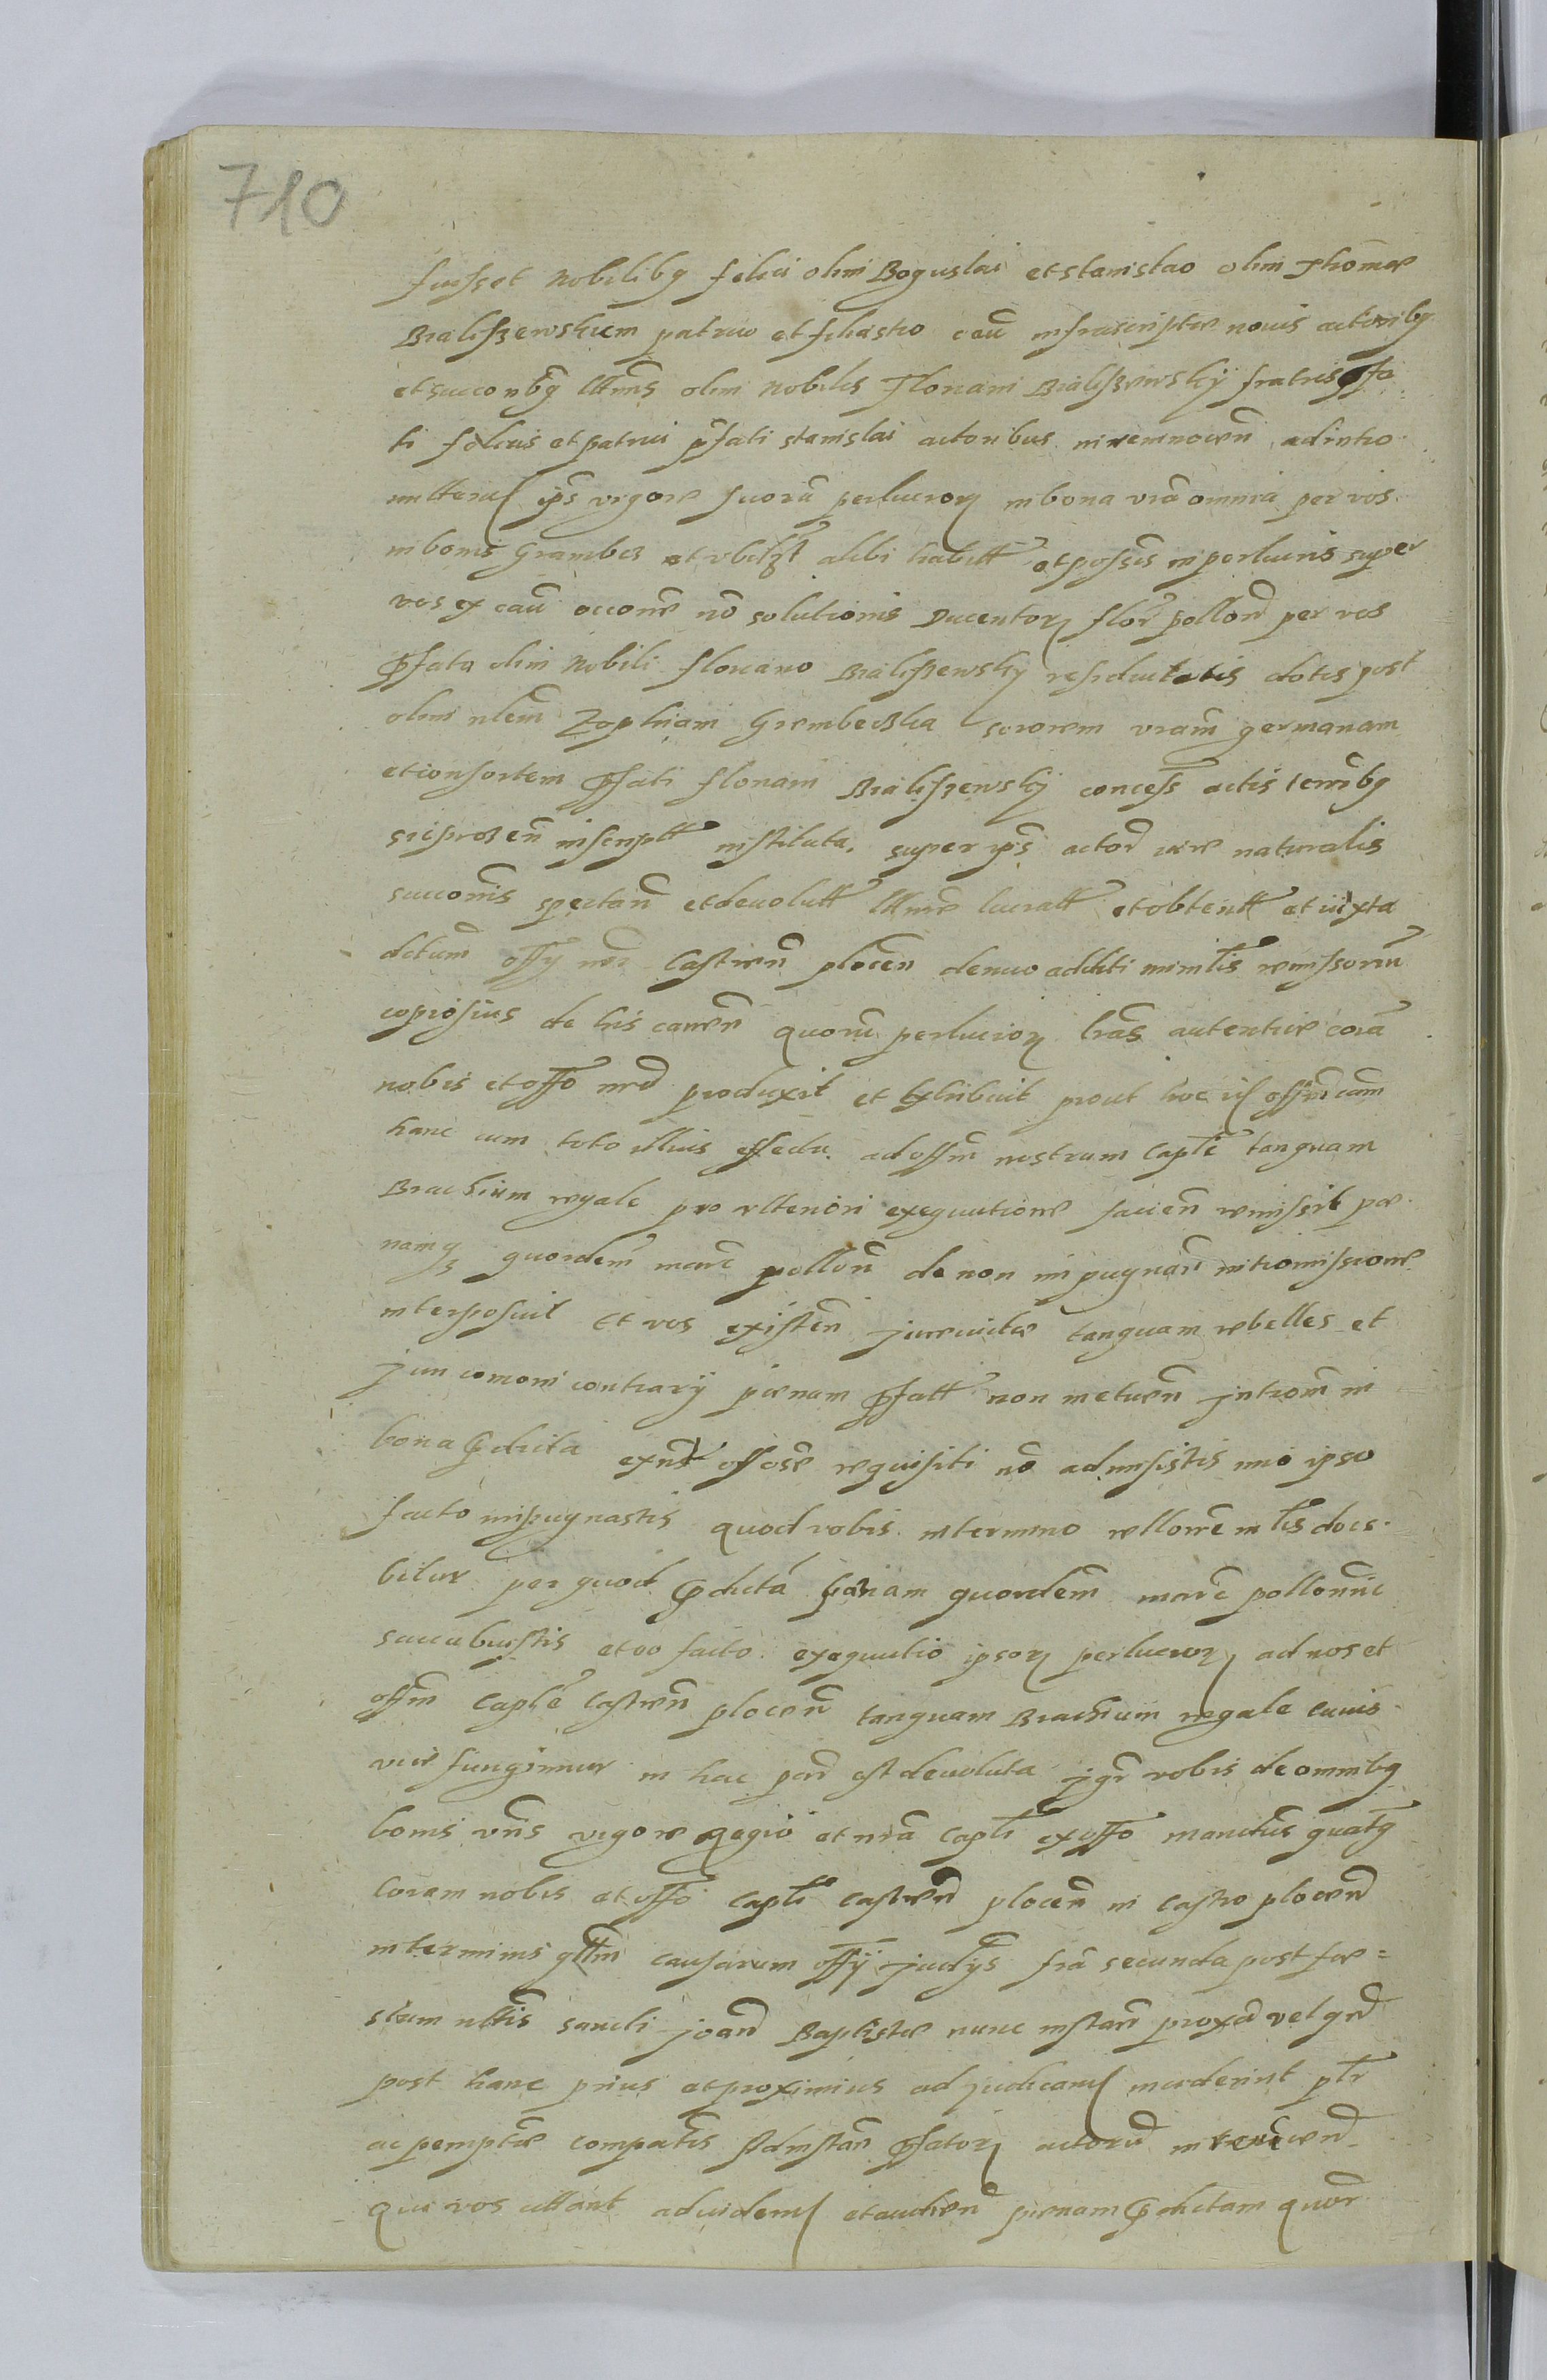 710
fuisset Nobilibg felici olim Boguslai et stanislao olim Thomae
Bialiszewskiem patruo et filiastro cau infrascriptae novis actoribg
et succonbg lttimis olim Nobilis Floriani Bialiszewsky fratris pfa
ti felicis et patrui pfati stanislai actoribus in reminocen ad intro
mitten ips vigore suoru perlucroru in bona vra omnia per vos
in bonis Grambcz et vbilzt alibi habitt et possess in perlucris super
vos ex cau occone no solutionis Ducentoru flor pollon per vos
pfato olim Nobili floriano Bialiszewsky residuitatis dotis post
olim nlem Zophiam Grembeczka sororem vram germanam
et consortem pfati floriani Bialiszewsky concess actis terribg
sicprozen inscriptt instituta, super ips actor iure naturalis
succonis spectan et devolutt lttime lucratt et obtentt et iuxta
dctum offy nri Castren plocen denuo additi minlis remissoriu
copiosius de his canere quoru perlucroru lras autentice cora
nobis et offo nro produxit et exhibuit prout hoc id offm cam
hanc cum toto illius effectu ad offm nostrum Capli tanquam
Brachium regale pro vlteriori exequutione facien remissit pae
namq quordem marc pollon de non impugnan intromissione
interposuit Et vos existen jurevictae tanquam rebelles et
juri comoni contrarij paenam pfatt non metuen introm in
bona pdicta exnr offose requisiti no admisistis imo ipso
facto impugnastis quod vobis in termino rellone mlis doce
bitur per quod pdicta paenam quordem marc pollonic
succubuistis et eo facto exequutio ipsoru perlucroru ad nos et
offm Caple Castren plocen tanquam Brachium regale cuius
vice fungimur in hac par est devoluta jgr vobis de omnibg
bonis vris vigore Regio et nra Capli ex offo mandamus quatg
Coram nobis et offo Capli Castren plocen in Castro plocen
in terminis qltm causarum offy judys fra secunda post fae=
stum nttis sancti joan Baptistae nunc instan proxa vel qn
post hanc prius et proximius adjudican inciderint ptr
ac pemptae compatis Ad instan pfatoru actoru
Qui vos cittant ad viden et audien paenam pdictam quor